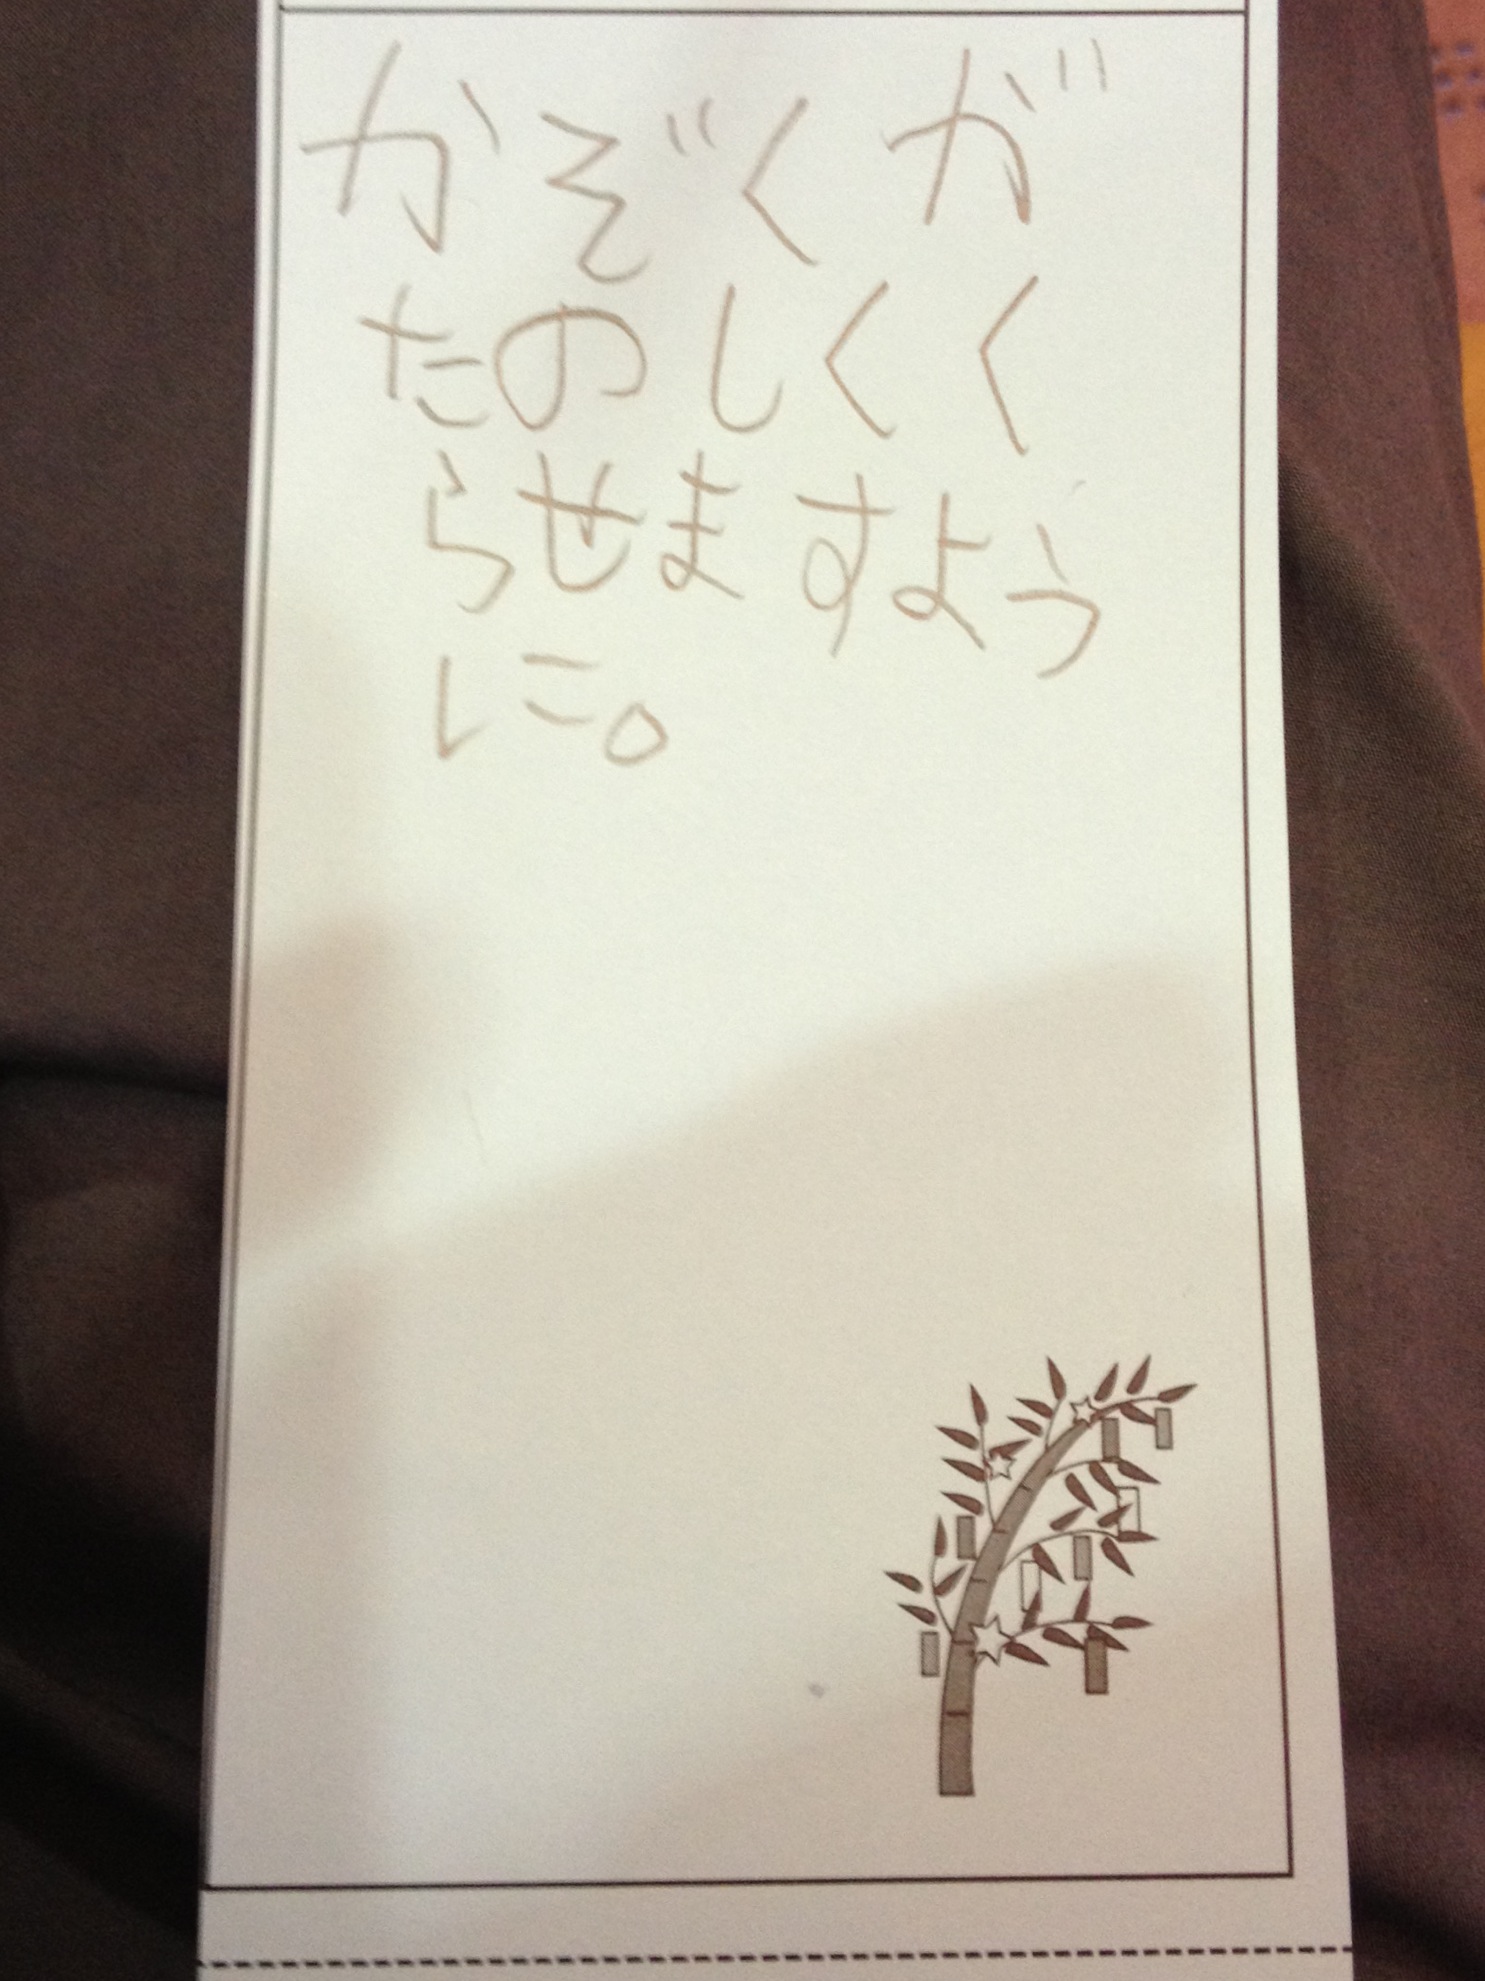 かぞくが
たのしくく
らせますよう
に。